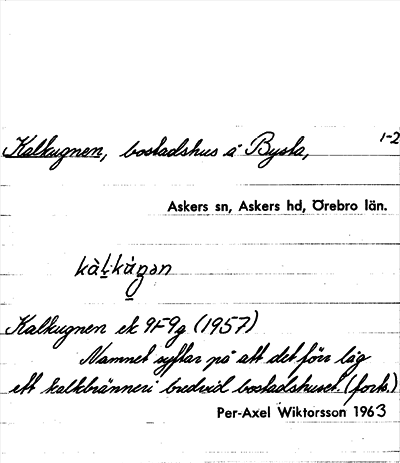 1-2
Kalkugnen, bostadshus å Bysta,
Askers sn, Askers hd, Örebro län.
kàḷkùgən
Kalkugnen ek 9F9g (1957)
Namnet syftar på att det förr låg
ett kalkbränneri bredvid bostadshuset. (forts.)
Per-Axel Wiktorsson 1963